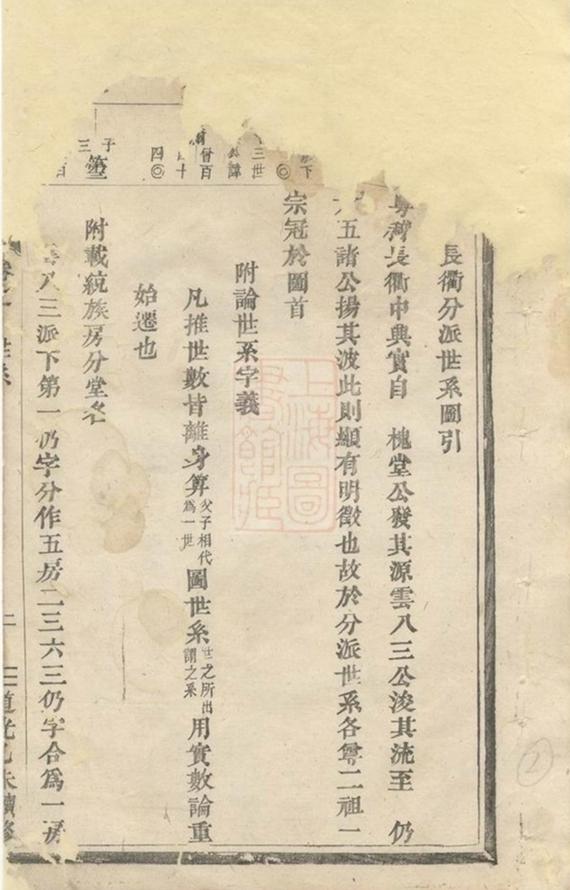 長衢分派世系圖引
長衢中興實自 槐堂公發其源雲八三公浚其流至 仍
五諸公揚其波此則顯有明徵也故於分派世系各尊二祖一
宗冠於圖首
附論世系字義
凡推世數皆離身算父子相代爲一世圖世系世之所出謂之系用實數論重
始遷也
附載統族房分堂名
八三派下第一仍字分作五房二三六三仍字合爲一房
道光乙未續修
上海圖書館藏
2